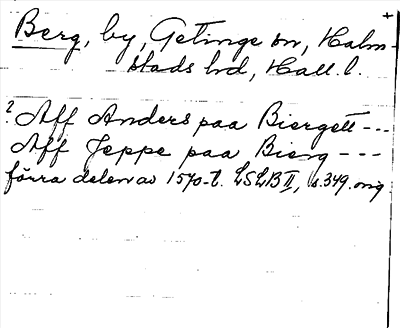 Berg, by, Getinge sn, Halm-
stads hd, Hall. l.
? Aff Anders paa Biergett ---
Aff Jeppe paa Bierg ---
förra delen av 1570-t. LSLB II, s. 349. orig